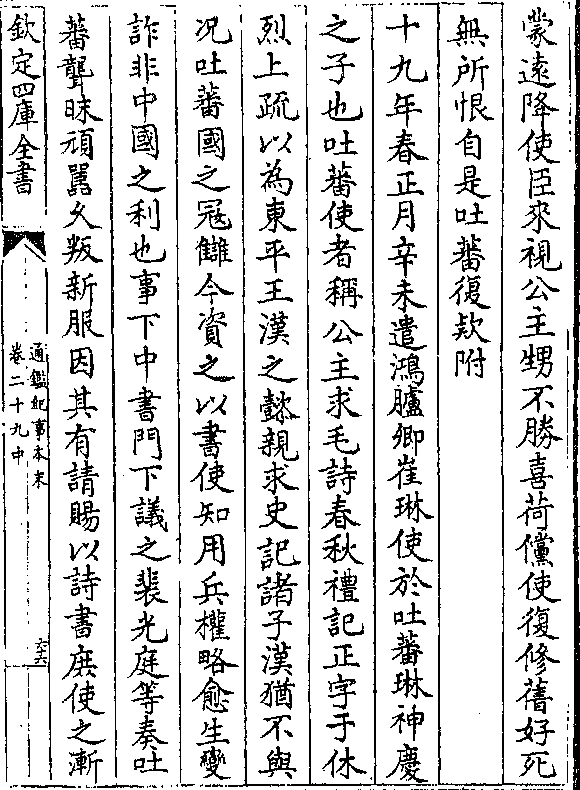 蒙遠降使臣來視公主甥不勝喜荷儻使復修舊好死
無所恨自是吐蕃復款附
十九年春正月辛未遣鴻臚卿崔琳使於吐蕃琳神慶
之子也吐蕃使者稱公主求毛詩春秋禮記正字于休
烈上疏以為東平王漢之懿親求史記諸子漢猶不與
况吐蕃國之冦讎今資之以書使知用兵權略愈生變
詐非中國之利也事下中書門下議之裴光庭等奏吐
蕃聾昧頑嚚乆叛新服因其有請賜以詩書庶使之漸
欽定四庫全書
通鑑紀事本末
卷二十九中
六六